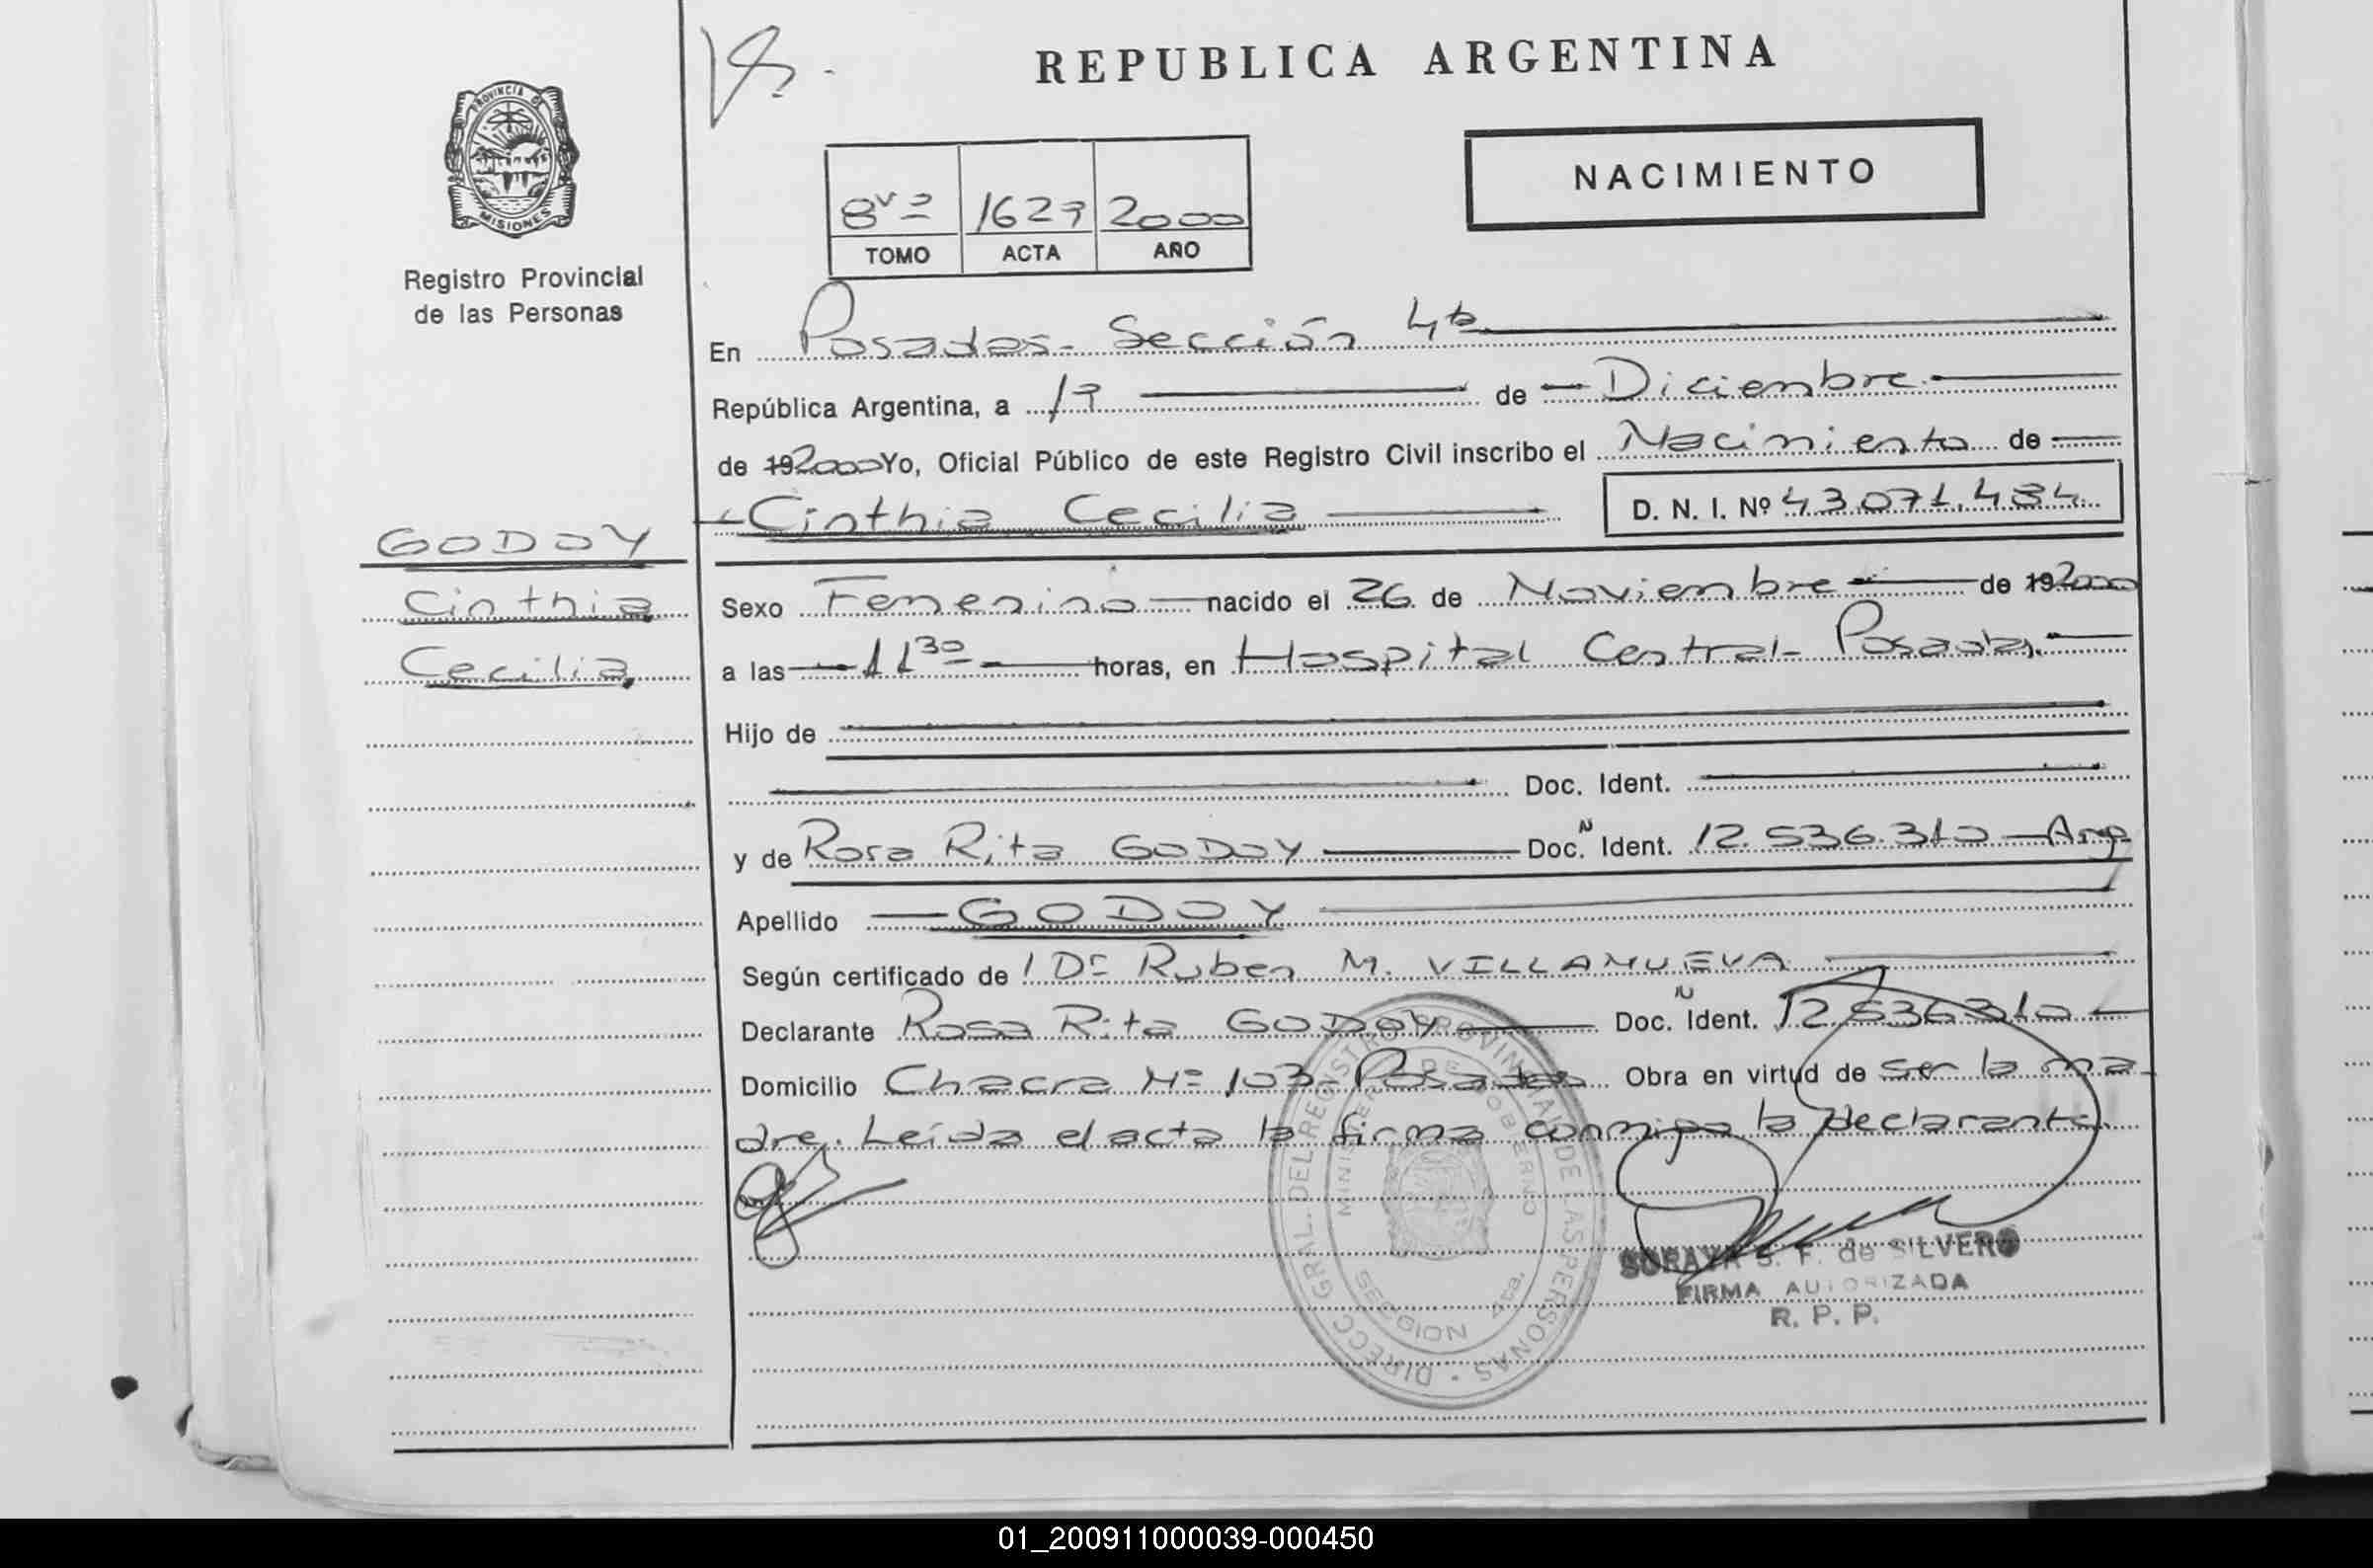 REPUBLICA ARGENTINA
PROVINCIA DE
MISIONES
Registro Provincial
de las Personas
NACIMIENTO
8vo 1627 2000
TOMO ACTA AÑO
En Posadas- Sección 4ta
República Argentina, a 17 de Diciembre
de 192000 Yo, Oficial Público de este Registro Civil inscribo el Nacimiento de
Cinthia Cecilia D. N. I. Nº 43.071.484
GODOY
Cinthia
Cecilia
Sexo Femenino nacido el 26 de Noviembre de 192000
a las 11 30 horas, en Hospital Central- Posadas.
Hijo de
Doc. Ident.
y de Rosa Rita GODOY Doc. N Ident. 12.536.310 Arg
Apellido GODOY
Según certificado de Dr Ruben M. VILLANUEVA
Declarante Rosa Rita GODOY Doc. N Ident. 12.536310
Domicilio Chacra Nº 103- Posadas Obra en virtud de ser la ma-
dre. Leída el acta la firma conmigo la declarante.
DIRECC GRAL. DEL REGISTRO PROVINCIAL DE LAS PERSONAS
MINISTERIO DE GOBIERNO
SECCION 4ta.
SORAYA S. F. de SILVERO
FIRMA AUTORIZADA
R. P. P.
01_200911000039-000450